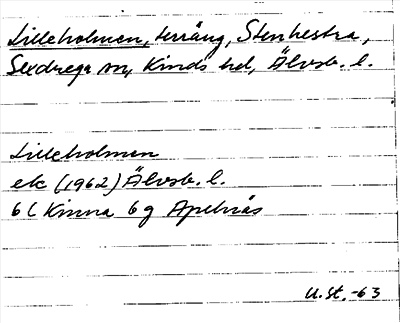 Lilleholmen, terräng, Stenhestra,
Sexdrega sn, Kinds hd, Älvsb. l.
Lilleholmen
ek (1962) Älvsb. l.
6 C Kinna 6 g Apelnäs
U. St. -63